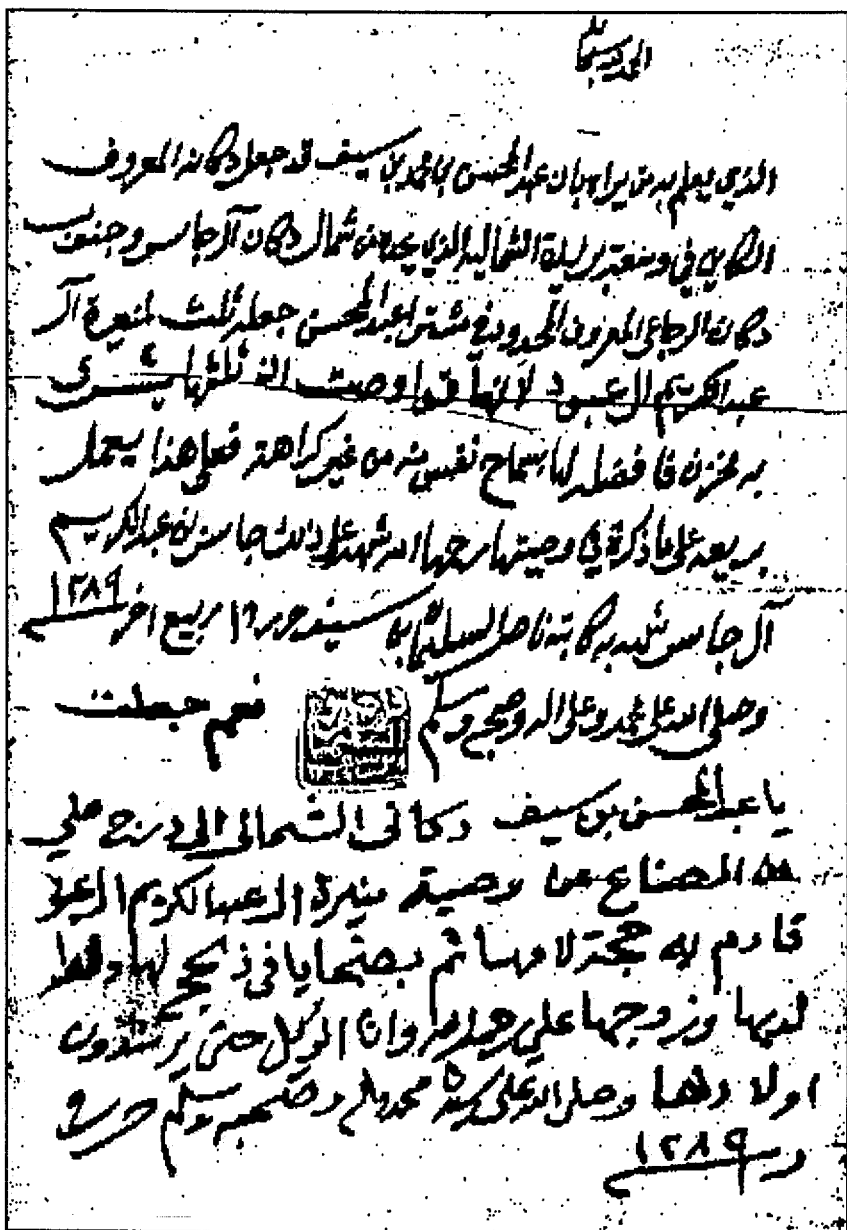 الحمد لله سبحانه
الذي يعلم به من يراه بان عبد المحسن بن محمد بن سيف قد جعل دكانه المعروف
الكاين في وسعة بريدة الشماليه الذي يحده من شمال دكان آل جاسر وجنوب
دكان الرجاعي المعروف المحدود في مشترا عبد المحسن جعله ثلث لمنيرة آل
عبد الكريم ال عبود لانها قد اوصت ان ثلثها يشرى
به فا فضله لها بسماح نفس منه من غير كراهة فعلى هذا يعمل
بريعه على ما ذكرة في وصيتها رحمها الله شهد على ذلك جاسر بن عبد الكريم
آل جاسر شهد به كاتبه ناصر السليمان بن سيف حرر ١٩ ربيع اخر ١٢٨٩
وصلى الله على محمد وعلى اله وصحبه وسلم نعم جعلت
يا عبد المحسن بن سيف دكاني الشمالي الى على
المصناع عن وصية منيرة ال عبد الكريم ال
قادم به حجة لامها ثم بضحايا في لها
لديها وزوجها علي وانا الوكيل حتى يرشدون
اولادها وصلى الله على سيدنا محمد واله وصحبه وسلم حرر في
١٢٨٩